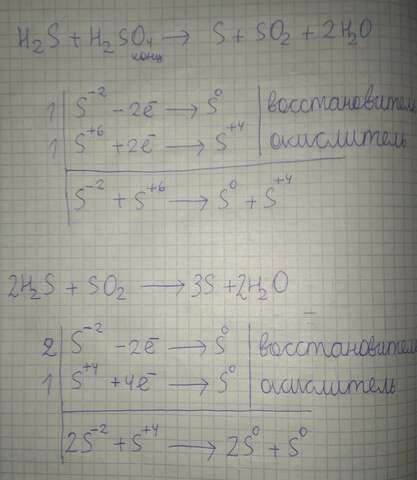 H₂S + H₂SO₄ → S + SO₂ + 2H₂O
конц
1 | S⁻² - 2e⁻ → S⁰ | восстановитель
1 | S⁺⁶ + 2e⁻ → S⁺⁴ | окислитель
S⁻² + S⁺⁶ → S⁰ + S⁺⁴
2H₂S + SO₂ → 3S + 2H₂O
2 | S⁻² - 2e⁻ → S⁰ | восстановитель
1 | S⁺⁴ + 4e⁻ → S⁰ | окислитель
2S⁻² + S⁺⁴ → 2S⁰ + S⁰